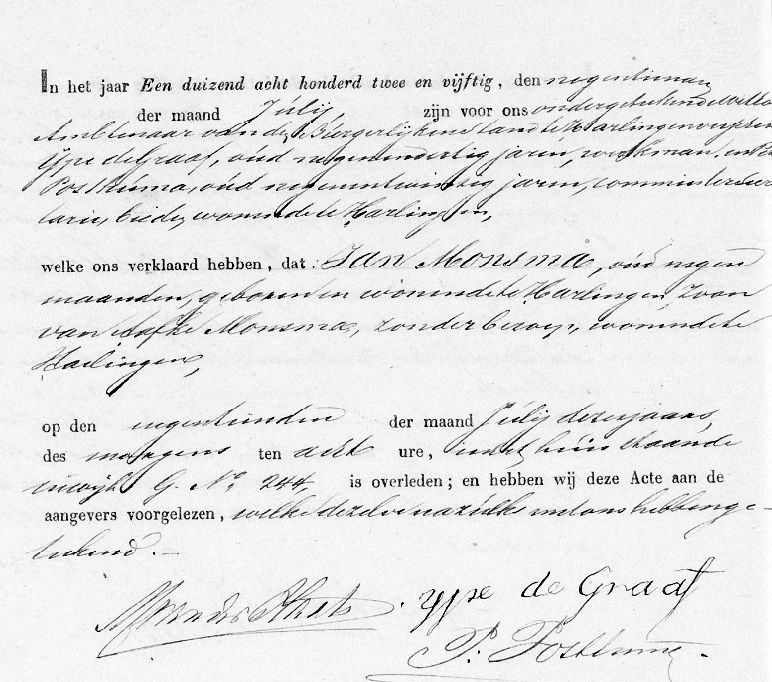 In het jaar Een duizend acht honderd twee en vijftig, den negentienden
der maand Julij zijn voor ons ondergeteekende
Ambtenaar van den Burgerlijken Stand te Harlingen
Ype de Graaf, oud negenendertig jaren, werkman, en
Posthuma, oud negenentwintig jaren, commies ter Secre
tarie, beide, wonende te Harlingen,
welke ons verklaard hebben, dat: Jan Monsma, oud negen
maanden, geboren en wonende te Harlingen, Zoon
van Aafke Monsma, zonder beroep, wonende te
Harlingen,
op den negentienden der maand Julij dezes jaars,
des morgens ten acht ure, in het huis staande
in wijk G. No. 244, is overleden; en hebben wij deze Acte aan de
aangevers voorgelezen, welke dezelve nazulks met ons hebben ge-
teekend. —
Ype de Graaf
P. Posthuma.